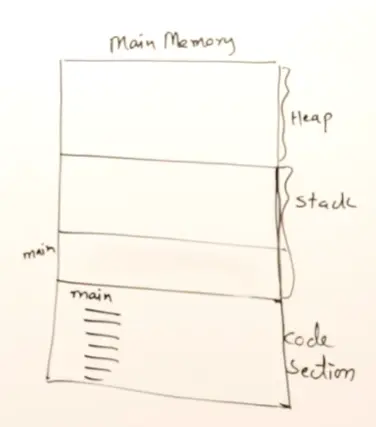 Main Memory
Heap
Stack
main
main
Code
Section